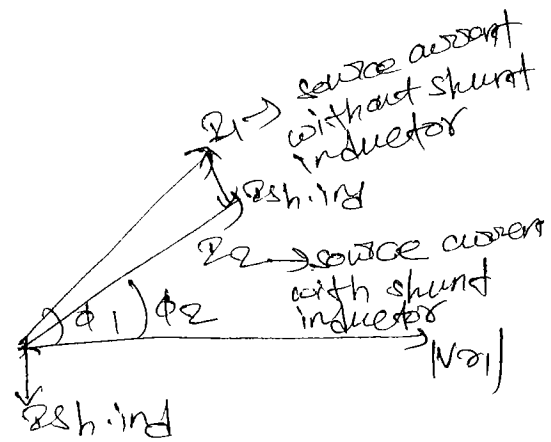 I1 → source current
without shunt
inductor
Ish.ind
I2 → source current
with shunt
inductor
ϕ1
ϕ2
|Vr1|
Ish.ind